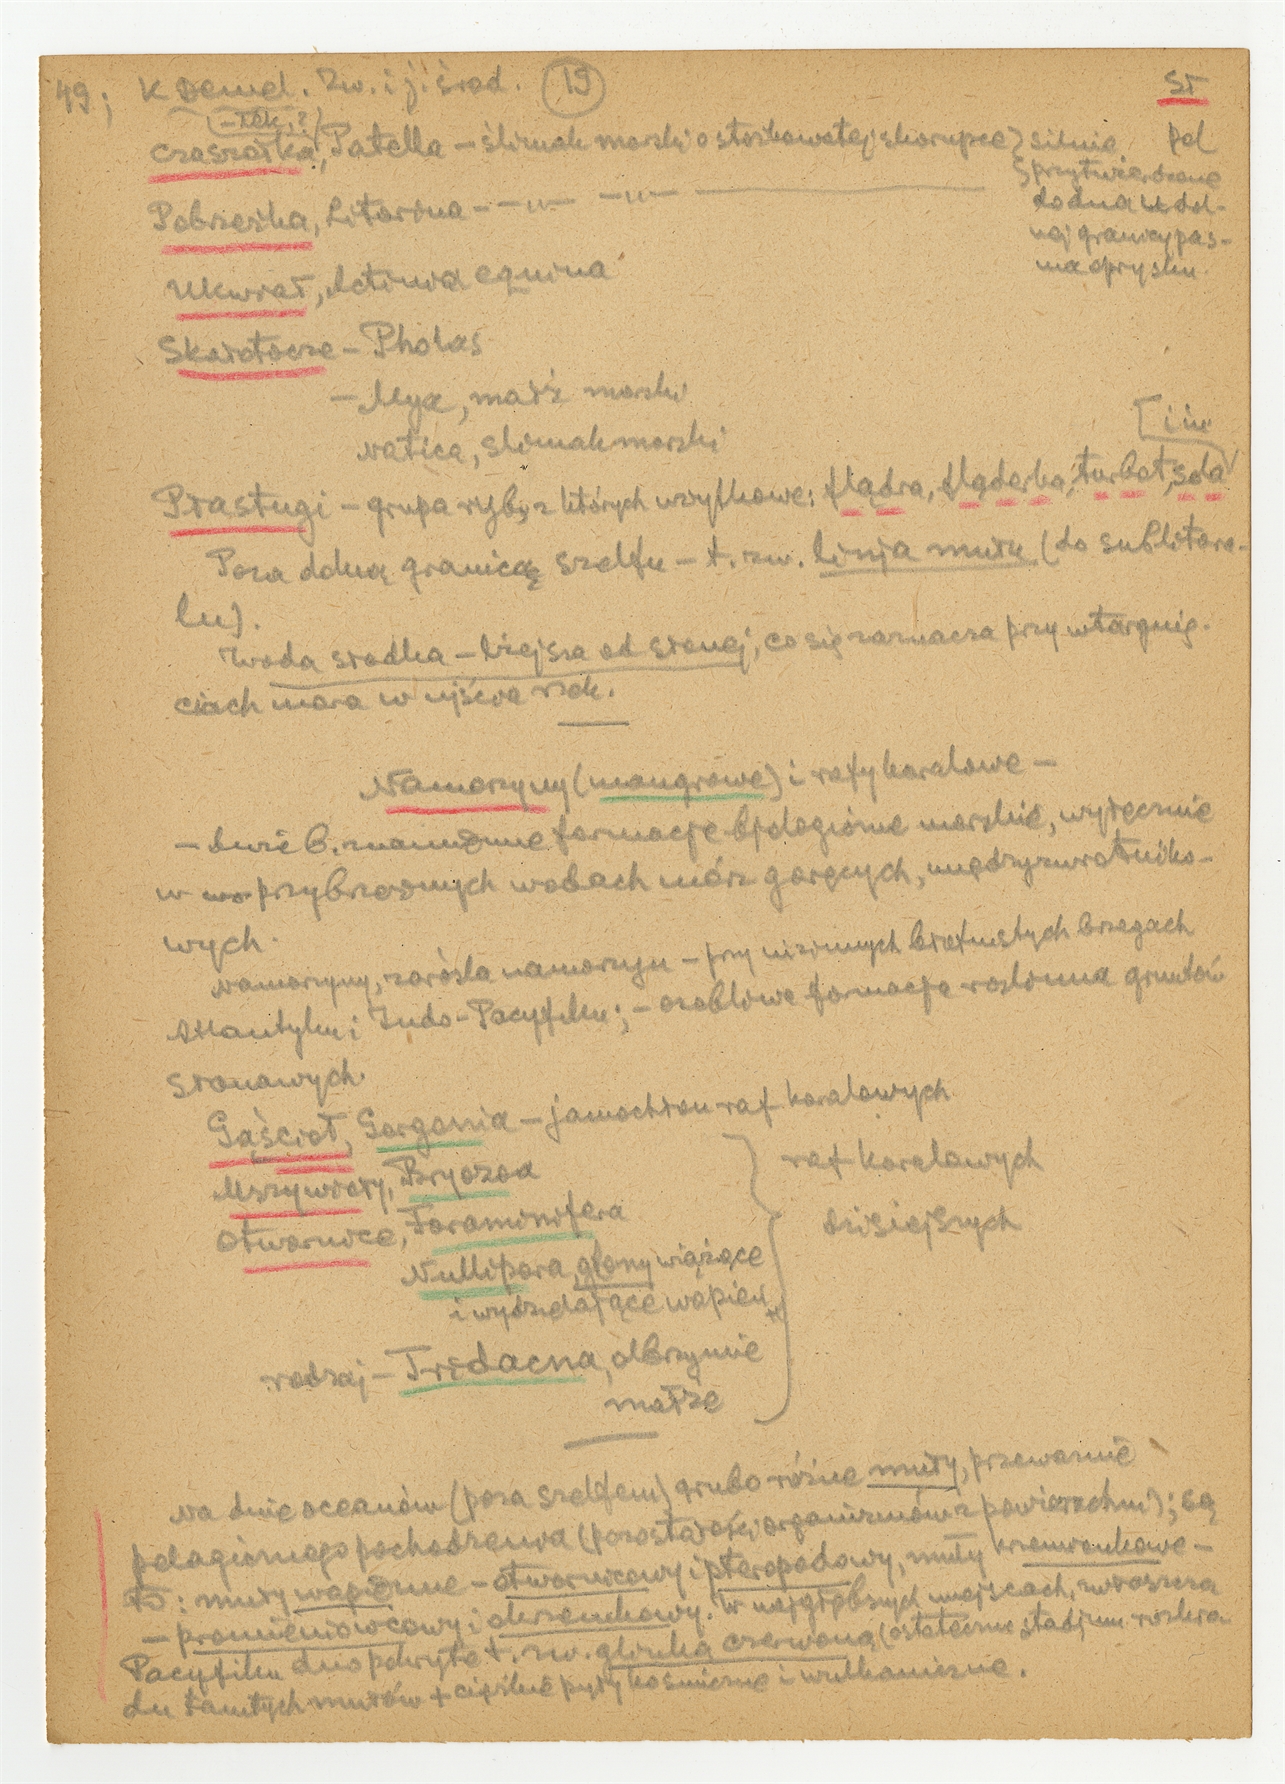 49; K Demel. Zw. i j. środ. (19) St
-rek.?
Czaszołka, Patella – ślimak morski o stożkowatej skorupce } silnie pel
przytwierdzone
Pobrzeżka, Litorina – –„– –„– ———
do dna w dol-
nej granicy pas-
ma oprysku.
Ukwiał, Actinia equina
Skałotocze – Pholas
– Mya, małż morski
Natica, ślimak morski
[i in.
Płastugi – grupa ryb, z których użytkowe: flądra, fląderka, turbot, sola
Poza dolną granicą szelfu – t. zw. linja mułu (do sublitora-
lu).
Woda słodka – lżejsza od słonej, co się zaznacza przy wtargnię-
ciach morza w ujścia rzek.
Namorzyny (mangrowe) i rafy koralowe –
– dwie b. znamienne formacje bjologiczne morskie, wyłącznie
w przybrzeżnych wodach mórz gorących, międzyzwrotniko-
wych.
Namorzyny, zarośla namorzyn – przy nizinnych błotnistych brzegach
Atlantyku i Indo-Pacyfiku; – osobliwe formacje roślinne gruntów
słonawych.
Gąścioł, Gorgonia – jamochłon raf koralowych
Mszywioły, Bryozoa
raf koralowych
Otwornice, Foraminifera
dzisiejszych
Nullipora, glony wiążące
i wydzielające wapień
rodzaj – Tridacna, olbrzymie
małże
Na dnie oceanów (poza szelfem) grubo różne muły, przeważnie
pelagicznego pochodzenia (pozostałości organizmów z powierzchni); są
to: muły wapienne – otwornicowy i pteropodowy, muły krzemionkowe –
– promieniowcowy i okrzemkowy. W najgłębszych miejscach, zwłaszcza
Pacyfiku dno pokryte t. zw. glinką czerwoną (ostateczne stadjum rozkła-
du tamtych mułów + cięższe pyły kosmiczne i wulkaniczne.